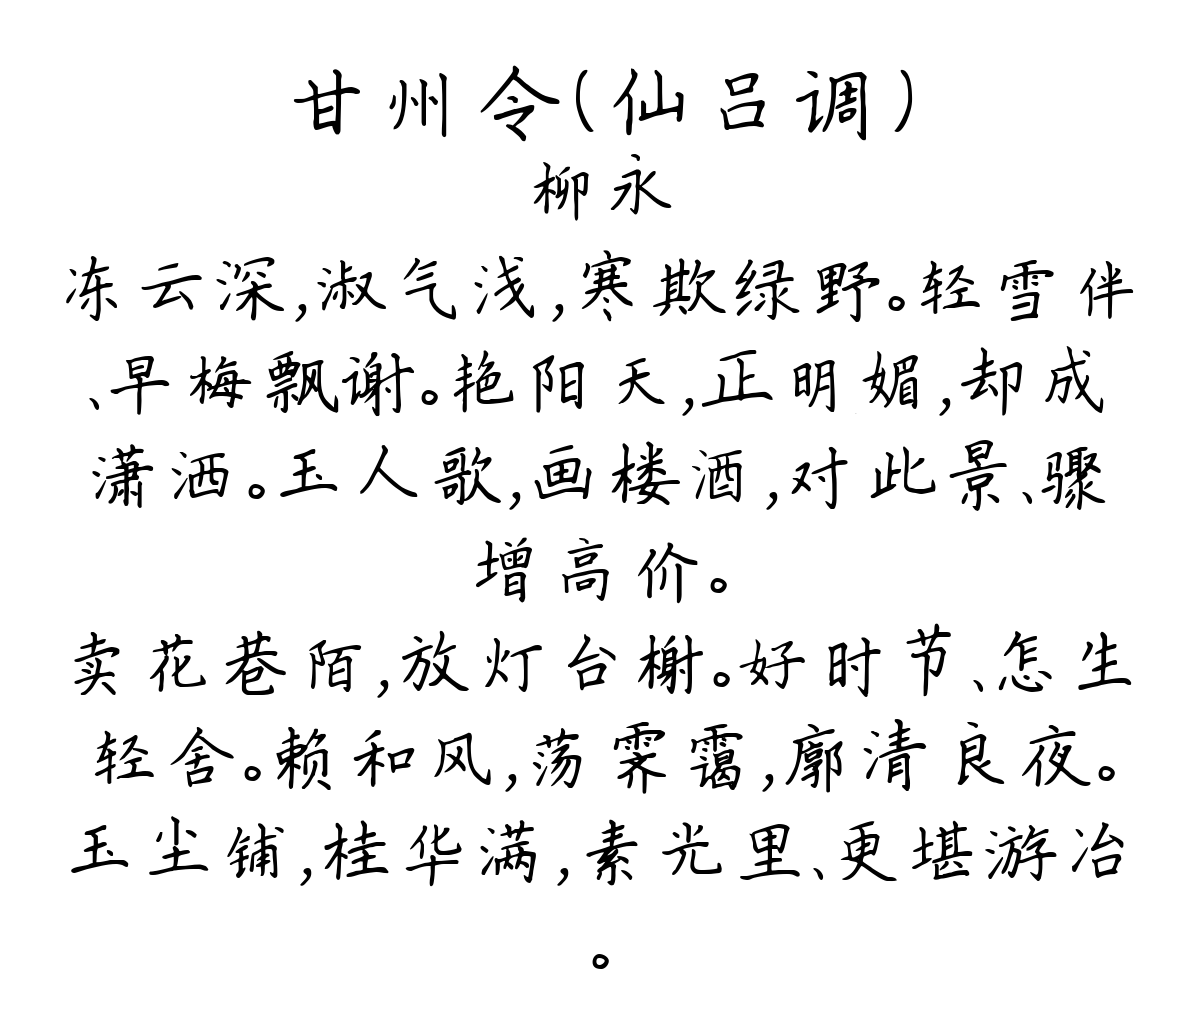 甘州令(仙吕调)
柳永
冻云深,淑气浅,寒欺绿野。轻雪伴
、早梅飘谢。艳阳天,正明媚,却成
潇洒。玉人歌,画楼酒,对此景、骤
增高价。
卖花巷陌,放灯台榭。好时节、怎生
轻舍。赖和风,荡霁霭,廓清良夜。
玉尘铺,桂华满,素光里、更堪游冶
。